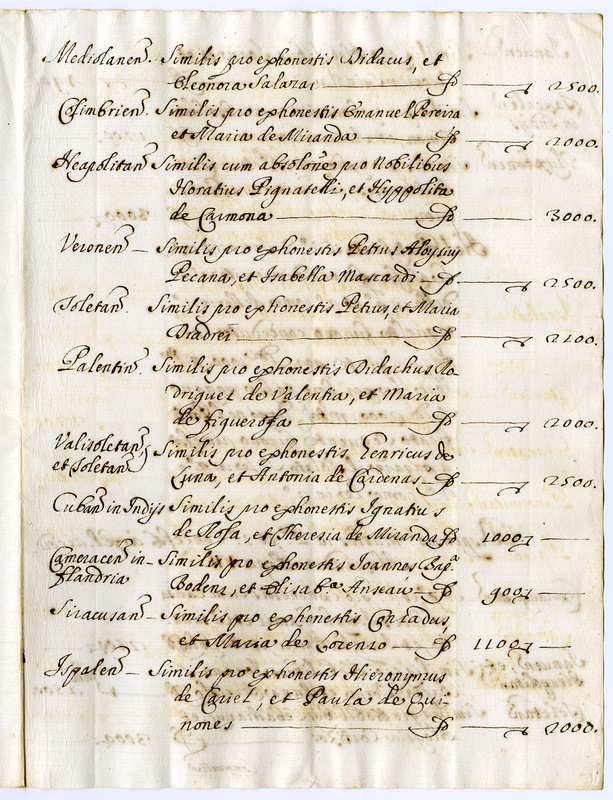 Mediolanen. Similis pro exhonestis Didacus, et
Eleonora Salazar 2500.
Colimbrien. Similis pro exhonestis Emanuel Pereira
et Maria de Miranda 2000.
Neapolitan Similis cum absolone pro Nobilibus
Horatius Pignatelli, et Hyppolita
de Carmona 3000.
Veronen Similis pro exhonestis Petrus Aloysius
Pecana, et Isabella Mascardi 2500.
Toletan. Similis pro exhonestis Petrus, et Maria
Diadrei 2100.
Palentin. Similis pro exhonestis Didachus Ro-
driguez de Valentia, et Maria
de figueroja 2000.
Valisoletan, Similis pro exhonestis Henricus de
et Toletan Luna, et Antonia de Cardenas 2500.
Cuban in Indijs Similis pro exhonestis Ignatius
de Rosa, et Theresia de Miranda 1000
Cameracen in Similis pro exhonestis Joannes Bap.a
fflandria Bodenz, et Elisab.a Anseau 900
Siracusan Similis pro exhonestis Conradus,
et Maria de Lorenzo 1100
Ispalen Similis pro exhonestis Hieronymus
de Cariel, et Paula de Qui-
nones 2000.